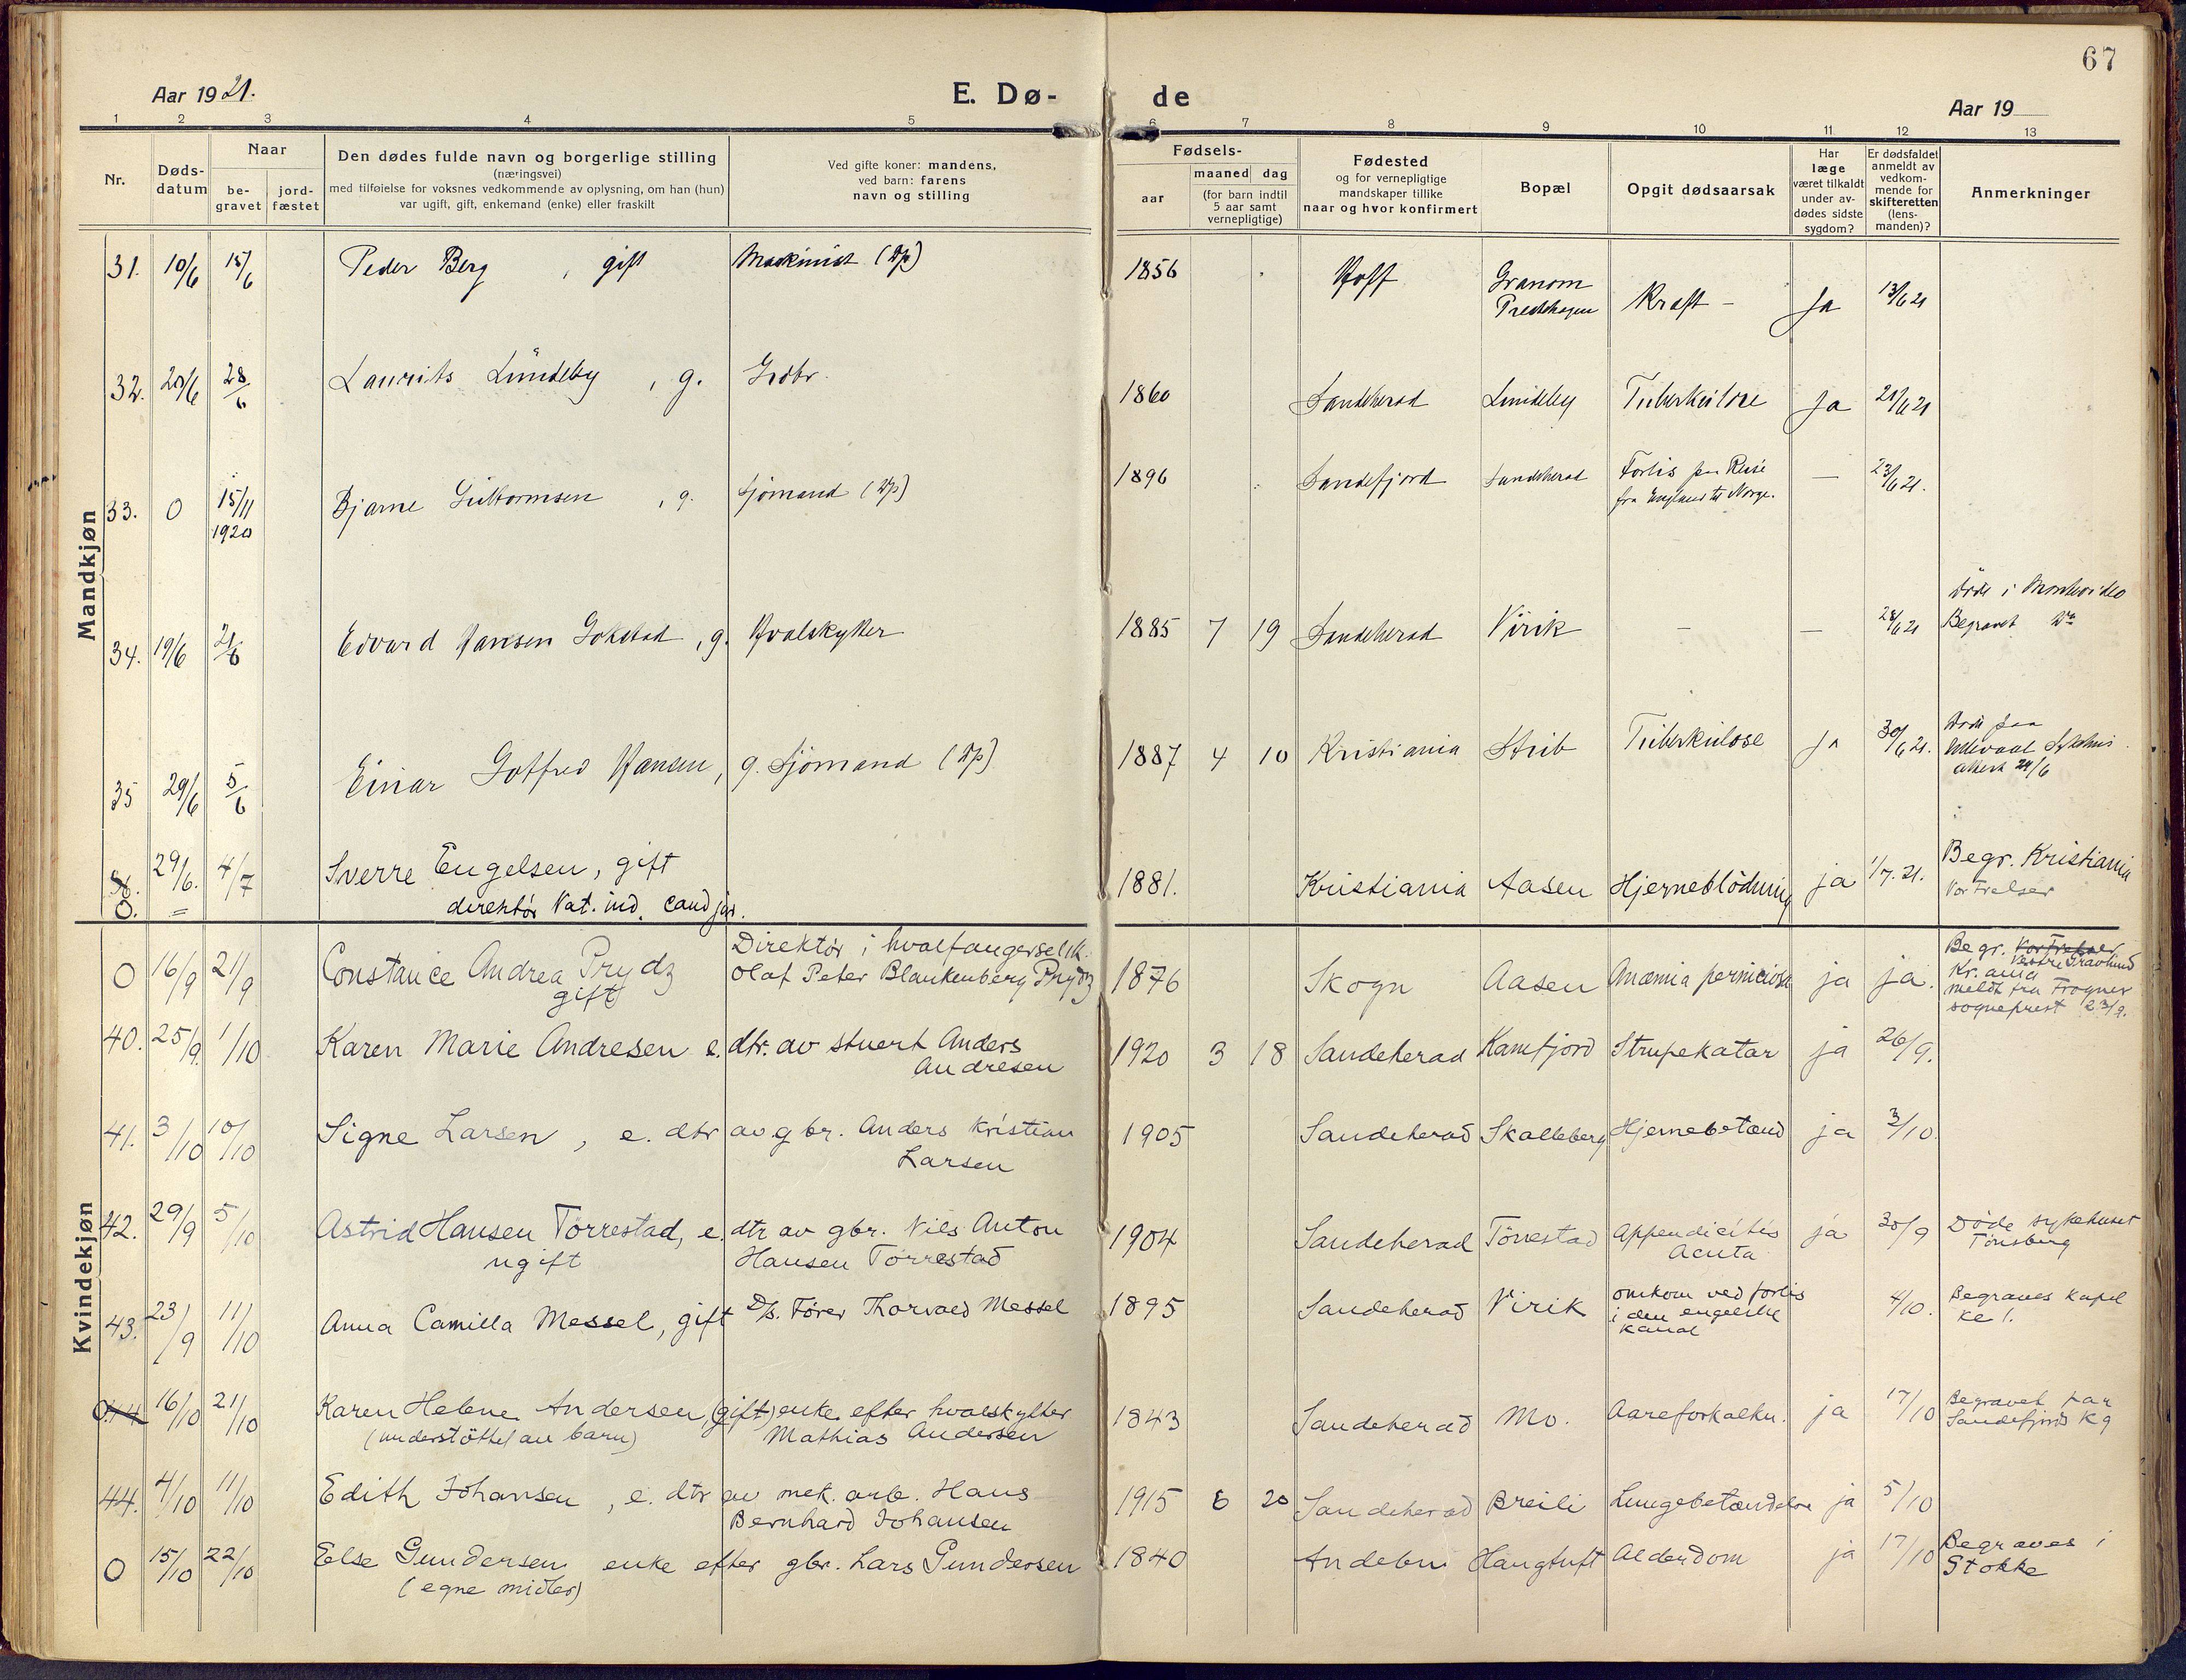 67
Aar 1921.
E. Dø-
de
Aar 19
1 2 3 4 5 6 7 8 9 10 11 12 13
Nr.
Døds-
datum
Naar
be-
gravet
jord-
fæstet
Den dødes fulde navn og borgerlige stilling
(næringsvei)
med tilføielse for voksnes vedkommende av oplysning, om han (hun)
var ugift, gift, enkemand (enke) eller fraskilt
Ved gifte koner: mandens,
ved barn: farens
navn og stilling
Fødsels-
aar
maaned dag
(for barn indtil
5 aar samt
vernepligtige)
Fødested
og for vernepligtige
mandskaper tillike
naar og hvor konfirmert
Bopæl
Opgit dødsaarsak
Har
læge
været tilkaldt
under av-
dødes sidste
sygdom?
Er dødsfaldet
anmeldt av
vedkom-
mende for
skifteretten
(lens-
manden)?
Anmerkninger
Mandkjøn
31. 10/6 15/6 Peder Berg, gift Maskinist 1856 Hoff Granom Kraft - Ja 13/6 21
32. 20/6 28/6 Laurits Lindeby, g. Grdbr. 1860 Sandeherad Lindeby Tuberkulose Ja 21/6 21
33. 0 15/11 1920 Bjarne Guttormsen, g. Sjömand 1896 Sandefjord Sandeherad Forlis paa Reise
fra England til Norge. — 23/6 21.
34. 19/6 21/6 Edvard Hansen Gokstad, g. Hvalskytter 1885 7 19 Sandeherad Virik — — 28/6 21 Döde i Montevideo
Begravet Do
35 29/6 5/6 Einar Gotfred Hansen, g. Sjömand 1887 4 10 Kristiania Strib Tuberkulose Ja 30/6 21. Döde paa
Ullevaal Sykehus
29/6
36. 29/6. 4/7 Sverre Engelsen, gift 1881. Kristiania Aasen Hjerneblödning ja 1/7. 21. Begr. Kristiania
0. = direktör Nat. ind. cand jur. Vor Frelser
Kvindekjøn
0 16/9 21/9 Constance Andrea Prydz
gift
Direktör i hvalfangerselsk.
Olaf Peter Blankenberg Prydz 1876 Skogn Aasen Anæmia perniciosa ja ja. Begr. Vor Frelser
Vestre Gravlund
Kr.ania
meldt fra Frogner
sogneprest 23/9.
40. 25/9. 1/10 Karen Marie Andresen e. dtr. av stuert Anders
Andresen 1920 3 18 Sandeherad Kamfjord Strupekatar ja 26/9.
41. 3/10 10/10 Signe Larsen, e. dtr av gbr. Anders Kristian
Larsen 1905 Sandeherad Skalleberg Hjernebetænd ja 3/10.
42. 29/9 5/10 Astrid Hansen Torrestad, e. dtr av gbr. Nils Anton
ugift Hansen Torrestad 1904 Sandeherad Törrestad Appendicitis
Acuta ja 30/9 Döde sykehuset
Tönsberg
43. 23/9 11/10 Anna Camilla Messel, gift D/s. Förer Thorvald Messel 1895 Sandeherad Virik omkom ved forlis
i den engelske
kanal 4/10. Begraves kapel
ke!.
0.44 16/10 21/10 Karen Helene Andersen, (gift) enke efter hvalskytter
(understöttet av barn) Mathias Andersen 1843 Sandeherad Mo. Aareforkalkn. ja 17/10 Begravet paa
Sandefjord Kg
44. 4/10 11/10 Edith Johansen, e. dtr av mek. arb. Hans
Bernhard Johansen 1915 6 20 Sandeherad Breili Lungebetændelse ja 5/10
0 15/10 22/10 Else Gundersen enke efter gbr. Lars Gundersen
(egne midler) 1840 Andebu Haugtuft Alderdom ja 17/10 Begraves i
Stokke